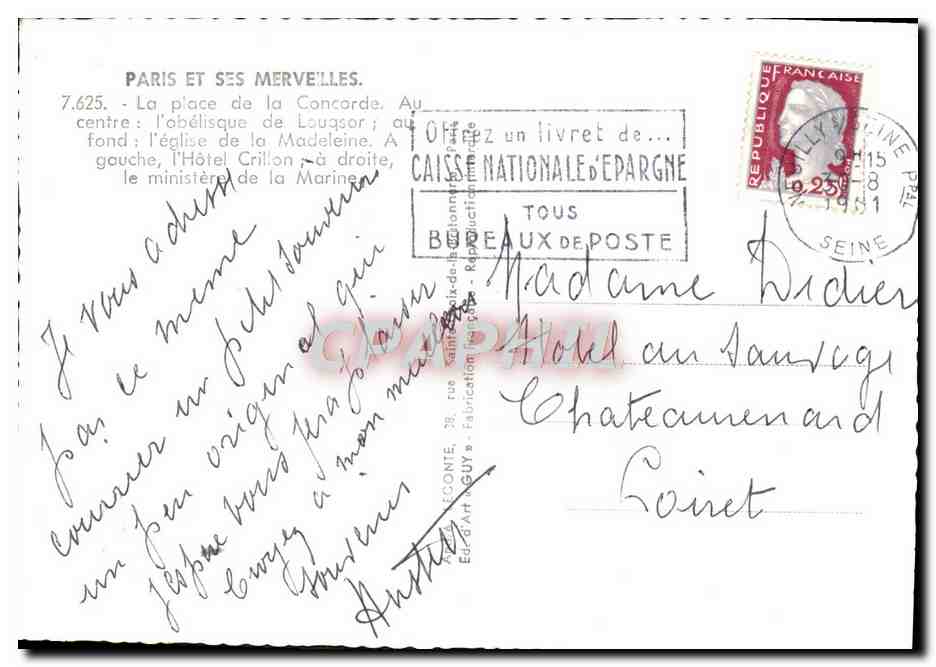 PARIS ET SES MERVEILLES.
7.625. - La place de la Concorde. Au
centre : l'obélisque de Louqsor ; au
fond : l'église de la Madeleine. A
gauche, l'Hôtel Crillon ; à droite,
le ministère de la Marine.
Je vous adresse
par ce même
courrier un petit souvenir
un peu original qui
j'espère vous fera plaisir
Croyez à mon meilleur
souvenir
LECONTE, 38, rue Sainte-Croix-de-la-Bretonnerie, Paris
Ed. d'Art « GUY » - Fabrication Française - Reproduction interdite
Offrez un livret de...
CAISSE NATIONALE D'EPARGNE
TOUS
BUREAUX DE POSTE
REPUBLIQUE FRANCAISE
0,25
SEINE
15
8
SEINE
PPAL
Madame Didier
Hotel au Sauvage
Chateaurenard
Loiret
CPAPHIL